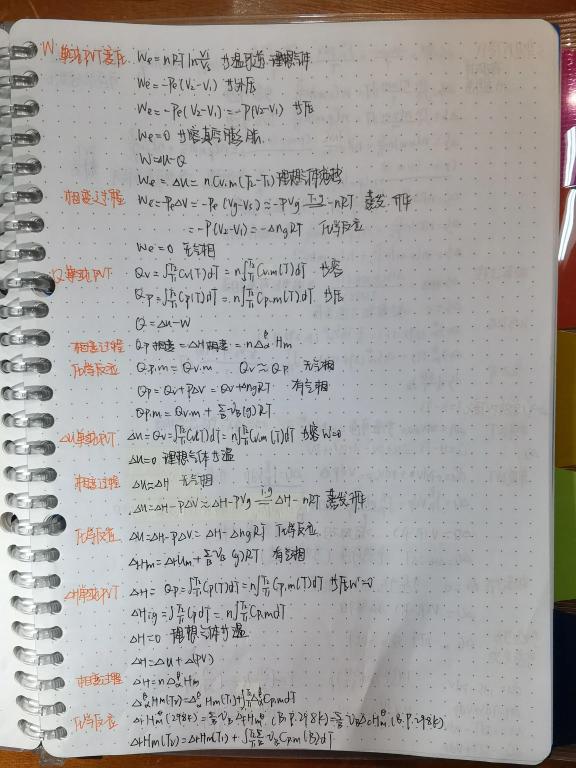 W 单纯PVT变化 We = nRT ln V1/V2 恒温可逆 理想气体
We = -Pe(V2-V1) 恒外压
We = -Pe(V2-V1) = -P(V2-V1) 恒压
We = 0 恒容真空
W = ΔU-Q
We = ΔU = nCv,m(T2-T1) 理想气体绝热
相变过程 We = -PeΔV = -Pe(Vg-Vs) ≈ -PVg =ig= -nRT 蒸发.升华
= -P(V2-V1) = -ΔngRT 化学反应
We = 0 无气相
Q 单纯PVT Qv = ∫T1T2 Cv(T)dT = n∫T1T2 Cv,m(T)dT 恒容
Qp = ∫T1T2 Cp(T)dT = n∫T1T2 Cp,m(T)dT 恒压
Q = ΔU-W
相变过程 Qp相变 = ΔH相变 = nΔαβHm
化学反应 Qp,m = Qv,m Qv ≈ Qp 无气相
Qp = Qv+PΔV = Qv+ΔngRT 有气相
Qp,m = Qv,m + ΣB νB(g)RT
ΔU 单纯PVT ΔU = Qv = ∫T1T2 Cv(T)dT = n∫T1T2 Cv,m(T)dT 恒容 W=0
ΔU = 0 理想气体恒温
相变过程 ΔU ≈ ΔH 无气相
ΔU = ΔH-PΔV ≈ ΔH-PVg =ig= ΔH-nRT 蒸发升华
化学反应 ΔU = ΔH-PΔV = ΔH-ΔngRT 化学反应
ΔrHm = ΔrUm + ΣB νB(g)RT 有气相
ΔH 单纯PVT ΔH = Qp = ∫T1T2 Cp(T)dT = n∫T1T2 Cp,m(T)dT 恒压 W'=0
ΔHig = ∫T1T2 CpdT = n∫T1T2 Cp,mdT
ΔH = 0 理想气体恒温
ΔH = ΔU + Δ(PV)
相变过程 ΔH = nΔαβHm
ΔαβHm(T2) = ΔαβHm(T1) + ∫T1T2 ΔαβCp,mdT
化学反应 ΔrHmθ(298K) = ΣB νBΔfHmθ(B.β.298K) = -ΣB νBΔcHmθ(B.β.298K)
ΔrHm(T2) = ΔrHm(T1) + ∫T1T2 ΣB νBCp,m(B)dT